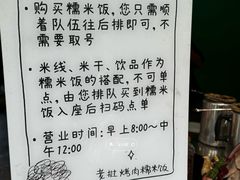 ·购买糯米饭,您只需顺
着队伍往后排即可,不
需要取号
·米线、米干、饮品作为
糯米饭的搭配,不可单
点,由您排队买到糯米
饭入座后扫码点单
·营业时间:早上8:00~中
午12:00
老挝烤肉糯米饭